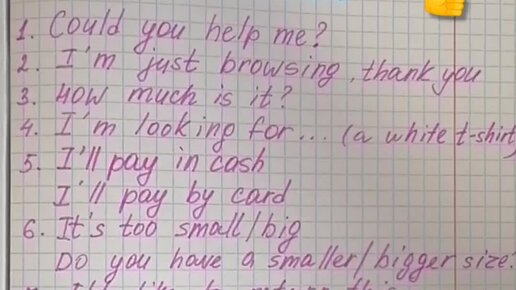 1. Could you help me?
2. I'm just browsing, thank you
3. How much is it?
4. I'm looking for... (a white t-shirt)
5. I'll pay in cash
I'll pay by card
6. It's too small/big
Do you have a smaller/bigger size?